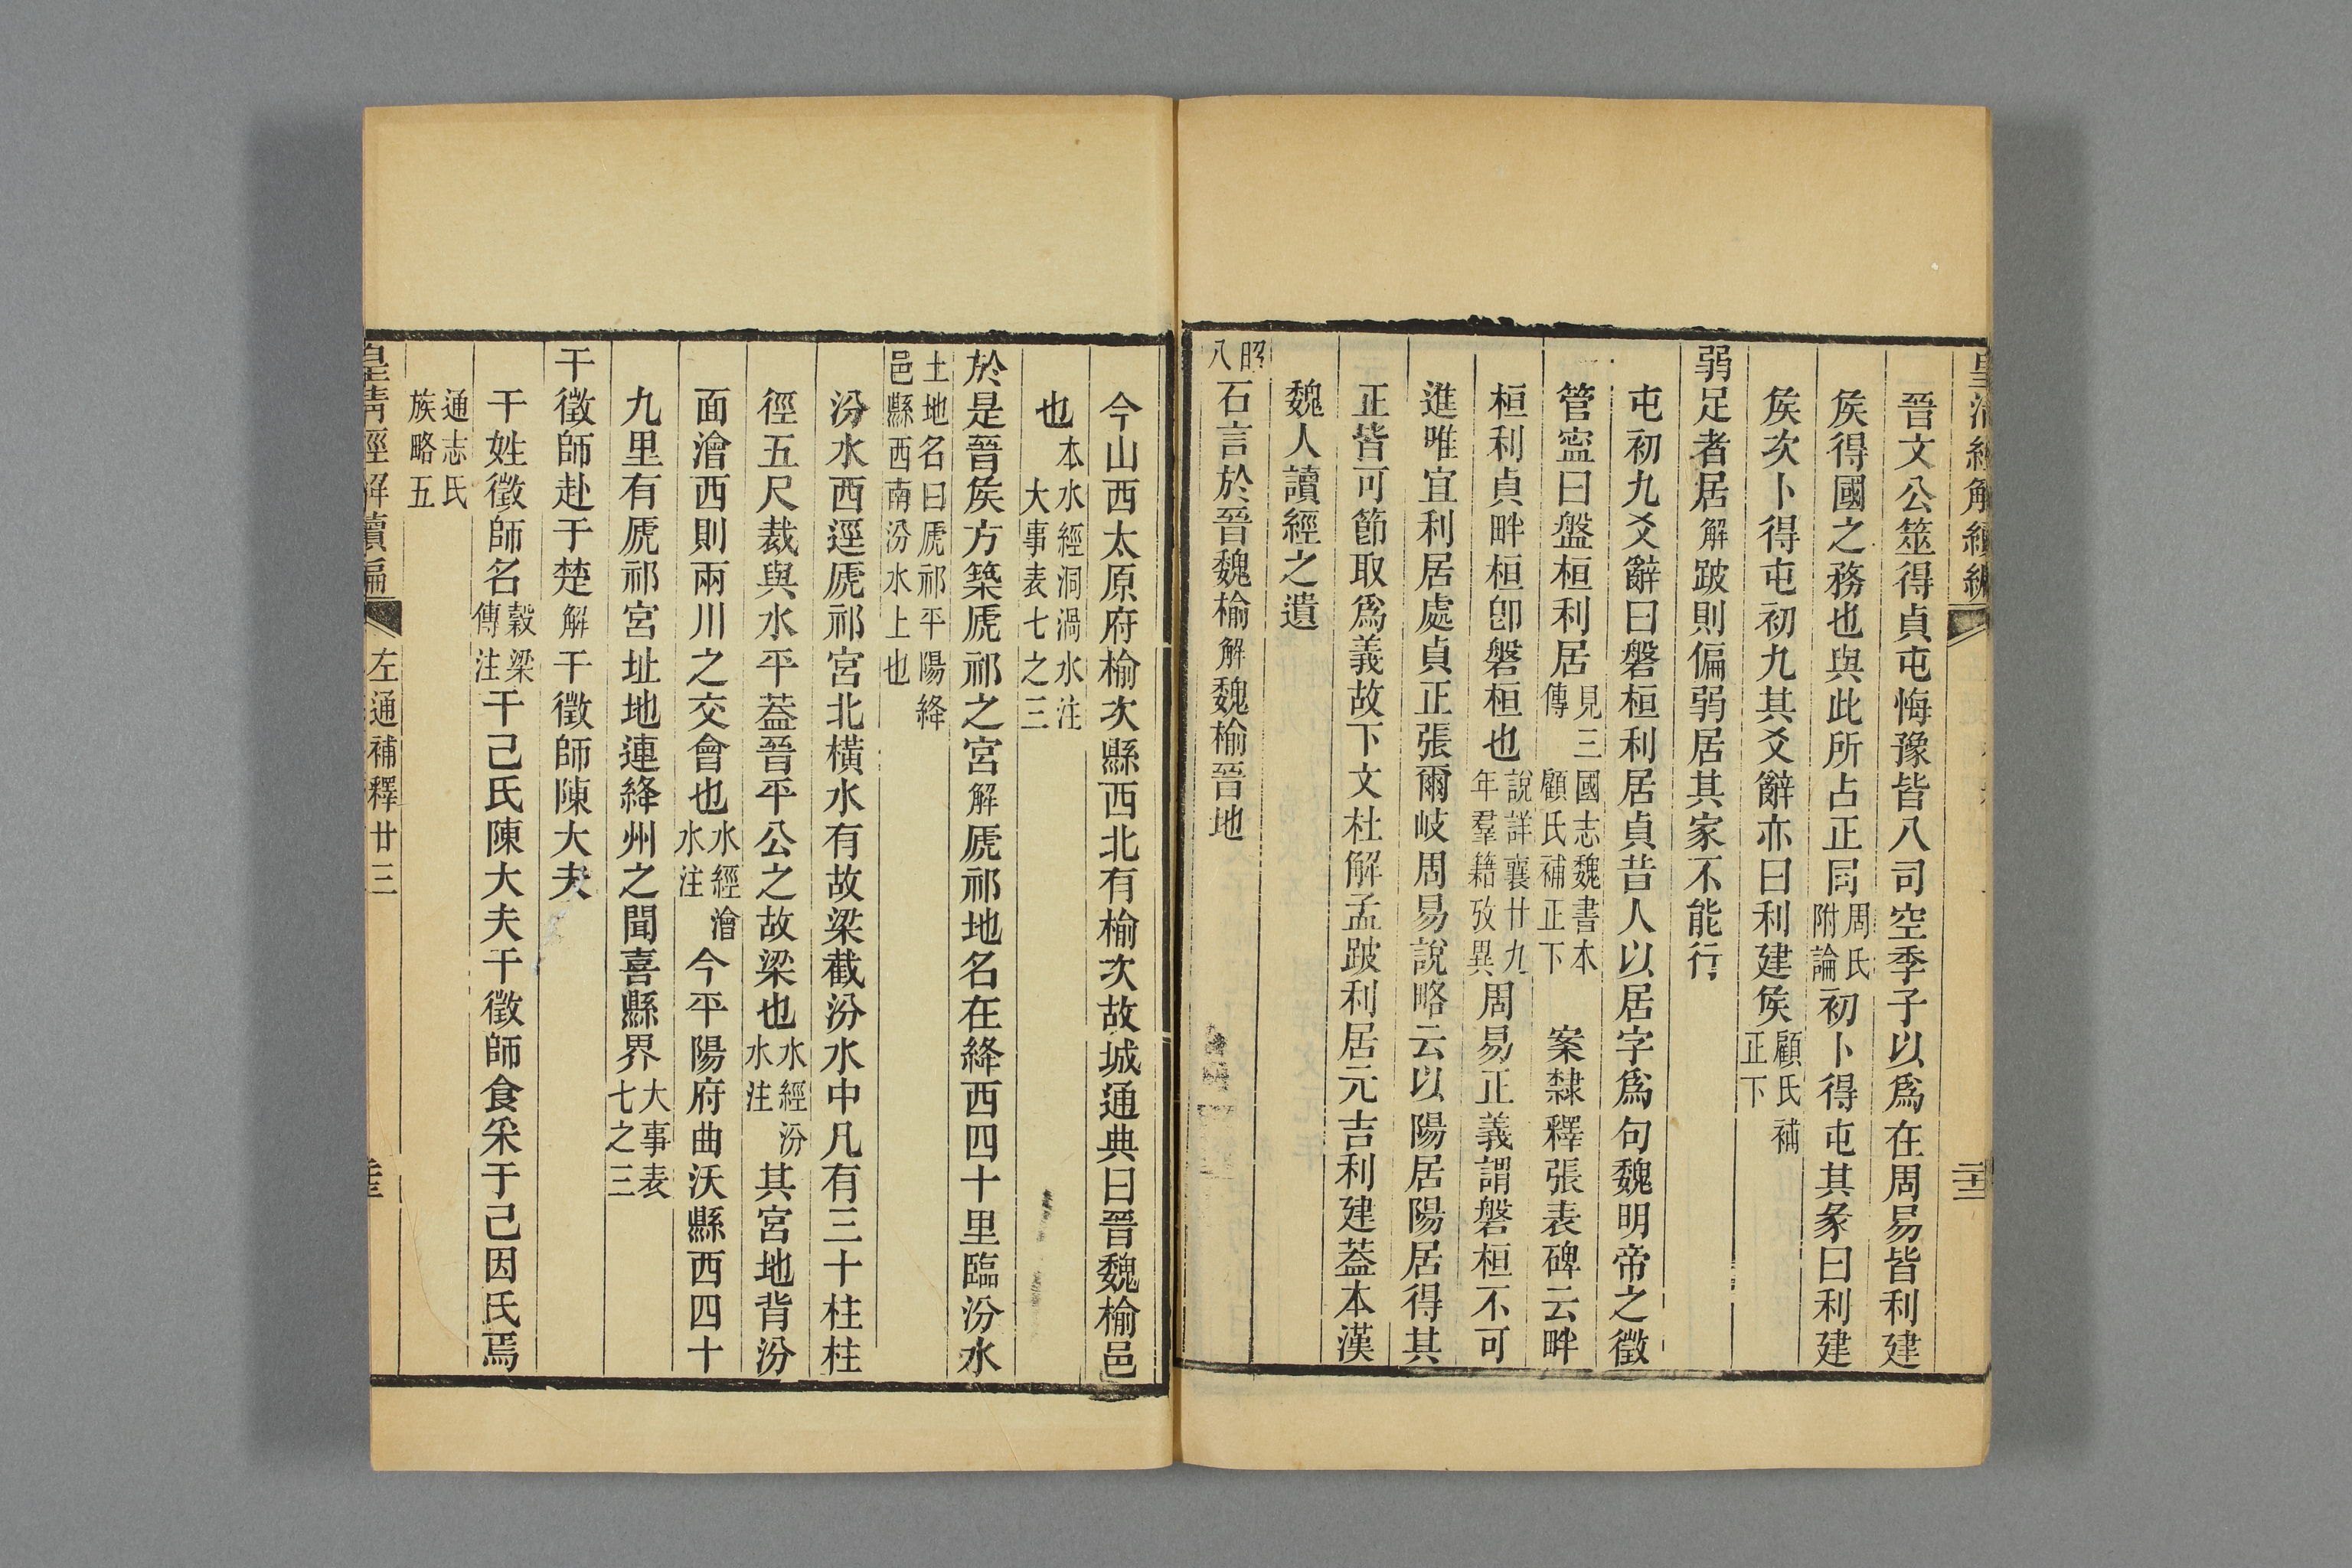 皇清經解續編
晉文公筮得貞屯悔豫皆八司空季子以爲在周易皆利建
矦得國之務也與此所占正同周氏附論初卜得屯其彖曰利建
矦次卜得屯初九其爻辭亦曰利建矦顧氏補正下
弱足者居解跛則偏弱居其家不能行
屯初九爻辭曰磐桓利居貞昔人以居字爲句魏明帝之徵
管寍曰盤桓利居見三國志魏書本傳顧氏補正下 案隸釋張表碑云畔
桓利貞畔桓卽磐桓也說詳襄廿九年羣籍攷異周易正義謂磐桓不可
進唯宜利居處貞正張爾岐周易說略云以陽居陽居得其
正皆可節取爲義故下文杜解孟跛利居元吉利建蓋本漢
魏人讀經之遺
昭八石言於晉魏榆解魏榆晉地
今山西太原府榆次縣西北有榆次故城通典曰晉魏榆邑
也本水經洞渦水注大事表七之三
於是晉矦方築虒祁之宮解虒祁地名在絳西四十里臨汾水
土地名曰虒祁平陽絳邑縣西南汾水上也
汾水西逕虒祁宮北橫水有故梁截汾水中凡有三十柱柱
徑五尺裁與水平蓋晉平公之故梁也水經汾水注其宮地背汾
面澮西則兩川之交會也水經澮水注今平陽府曲沃縣西四十
九里有虒祁宮址地連絳州之聞喜縣界大事表七之三
干徵師赴于楚解干徵師陳大夫
干姓徵師名穀梁傳注干己氏陳大夫干徵師食采于己因氏焉
通志氏族略五
皇清經解續編 左通補釋廿三